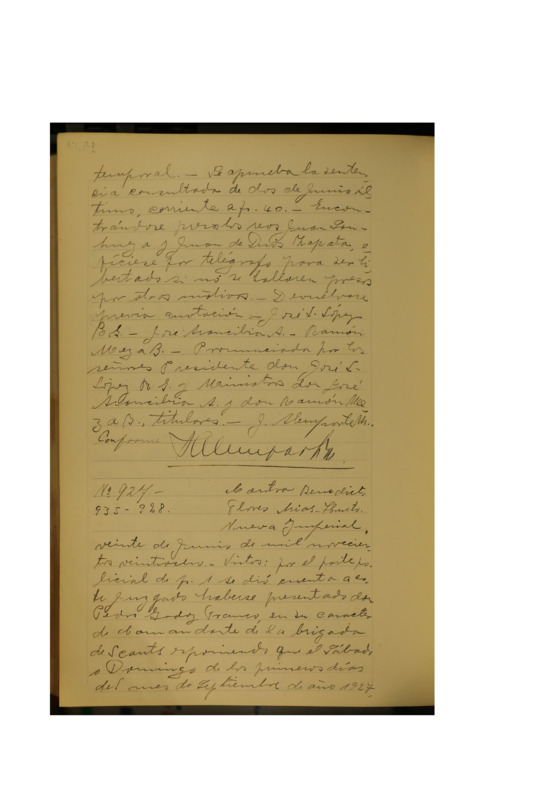 temporal. — Se aprueba la senten-
cia consultada de dos de Junio úl-
timo, corriente a fs. 40. — Encon-
trándose presos los reos Juan
y Juan de Dios Zapata, o-
fíciese por telégrafo para ser li-
bertados si no se hallaren presos
por otros motivos. — Devuélvase
previa anotación — José S. López
R S. — José Arancibia A. — Ramón
Meza B. — Pronunciada por los
señores Presidente don José S.
López R. S. y Ministros don José
Arancibia A. y don Ramón Me-
za B., titulares. — J. Alemparte R.
Conforme
Nº 927 — Contra Benedicto
935 - 928. Flores Arias - Hurto.
Nueva Imperial,
veinte de Junio de mil novecien-
tos veintiocho. — Vistos: por el parte po-
licial de fs. 1 se dió cuenta a es-
te Juzgado haberse presentado don
Pedro Godoy Franco, en su carácter
de Comandante de la brigada
de Scouts exponiendo que el Sábado
o Domingo de los primeros días
del mes de Septiembre de año 1927,